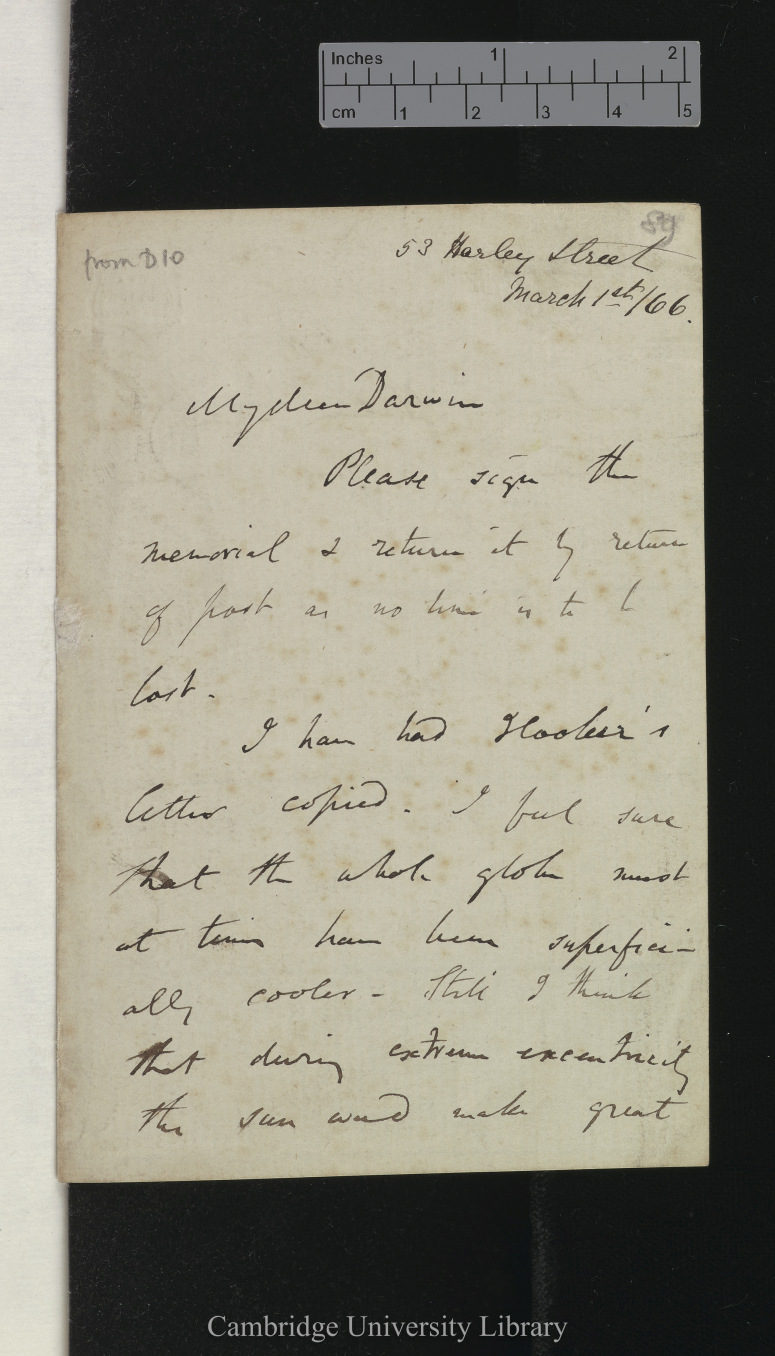 Inches 1 2
cm 1 2 3 4 5
54
from D10
53 Harley Street
March 1st/66.
My dear Darwin
Please sign the
memorial & return it by return
of post as no time is to be
lost.
I have had Hooker's
letter copied. I feel sure
that the whole globe must
at times have been superfici-
ally cooler - Still I think
that during extreme excentricity
the sun would make great
Cambridge University Library